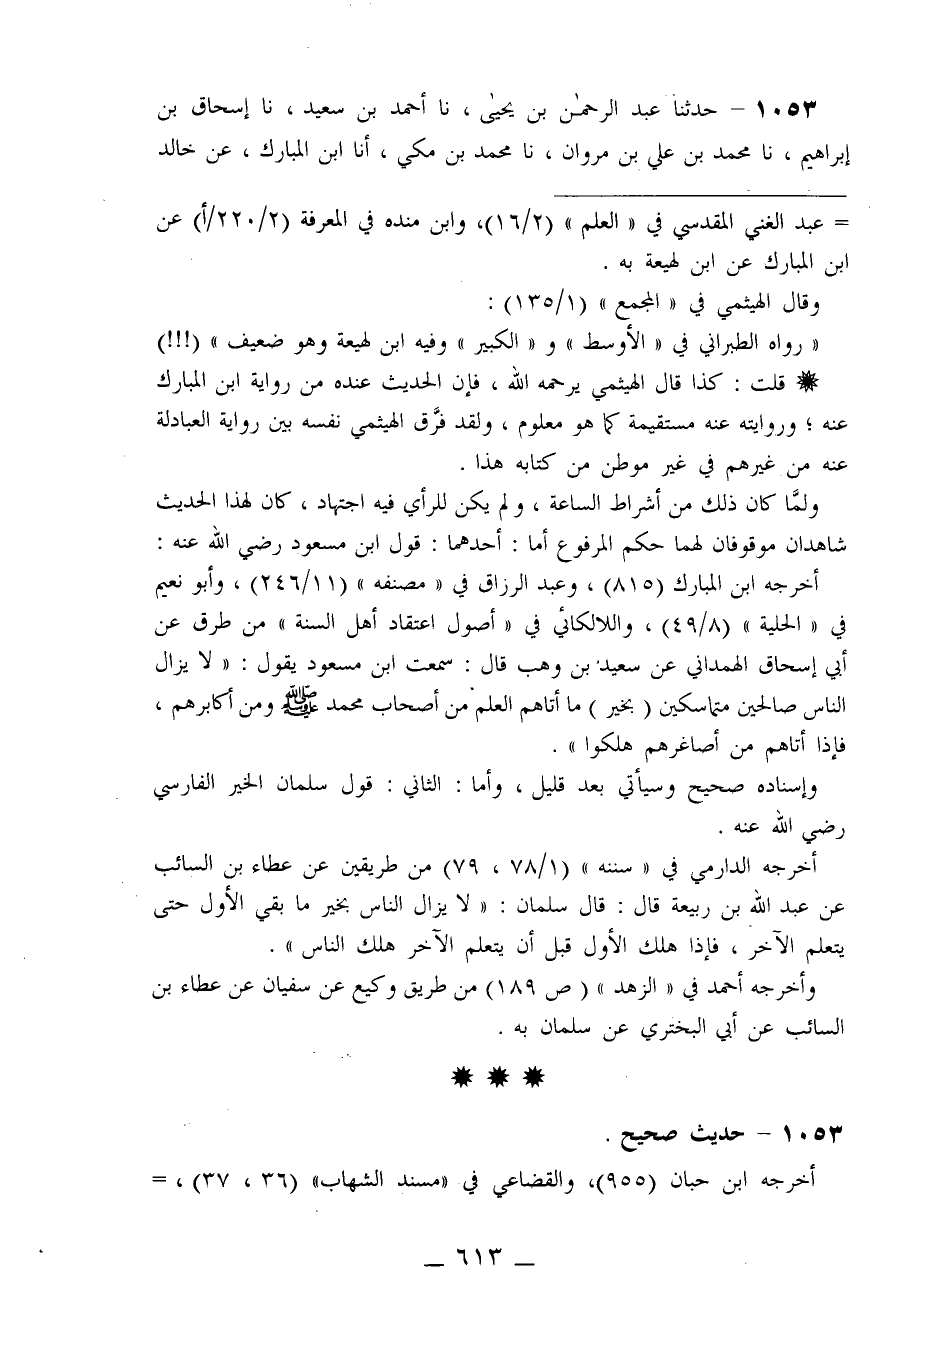 ١٠٥٣ – حدثنا عبد الرحمٰن بن يحيىٰ ، نا أحمد بن سعيد ، نا إسحاق بن
إبراهيم ، نا محمد بن علي بن مروان ، نا محمد بن مكي ، أنا ابن المبارك ، عن خالد
= عبد الغني المقدسي في « العلم » (١٦/٢)، وابن منده في المعرفة (٢/٢٢٠/أ) عن
ابن المبارك عن ابن لهيعة به .
وقال الهيثمي في « المجمع » (١٣٥/١) :
« رواه الطبراني في « الأوسط » و « الكبير » وفيه ابن لهيعة وهو ضعيف » (!!!)
✸ قلت : كذا قال الهيثمي يرحمه الله ، فإن الحديث عنده من رواية ابن المبارك
عنه ؛ وروايته عنه مستقيمة كما هو معلوم ، ولقد فرَّق الهيثمي نفسه بين رواية العبادلة
عنه من غيرهم في غير موطن من كتابه هذا .
ولمَّا كان ذلك من أشراط الساعة ، ولم يكن للرأي فيه اجتهاد ، كان لهذا الحديث
شاهدان موقوفان لهما حكم المرفوع أما : أحدهما : قول ابن مسعود رضي الله عنه :
أخرجه ابن المبارك (٨١٥) ، وعبد الرزاق في « مصنفه » (٢٤٦/١١) ، وأبو نعيم
في « الحلية » (٤٩/٨) ، واللالكائي في « أصول اعتقاد أهل السنة » من طرق عن
أبي إسحاق الهمداني عن سعيد بن وهب قال : سمعت ابن مسعود يقول : « لا يزال
الناس صالحين متماسكين ( بخير ) ما أتاهم العلم من أصحاب محمد ﷺ ومن أكابرهم ،
فإذا أتاهم من أصاغرهم هلكوا » .
وإسناده صحيح وسيأتي بعد قليل ، وأما : الثاني : قول سلمان الخير الفارسي
رضي الله عنه .
أخرجه الدارمي في « سننه » (٧٨/١ ، ٧٩) من طريقين عن عطاء بن السائب
عن عبد الله بن ربيعة قال : قال سلمان : « لا يزال الناس بخير ما بقي الأول حتى
يتعلم الآخر ، فإذا هلك الأول قبل أن يتعلم الآخر هلك الناس » .
وأخرجه أحمد في « الزهد » ( ص ١٨٩) من طريق وكيع عن سفيان عن عطاء بن
السائب عن أبي البختري عن سلمان به .
✸ ✸ ✸
١٠٥٣ – حديث صحيح .
أخرجه ابن حبان (٩٥٥)، والقضاعي في «مسند الشهاب» (٣٦ ، ٣٧) ، =
– ٦١٣ –